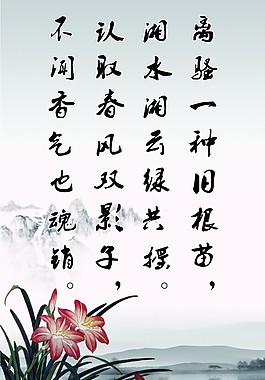 离骚一种旧根苗，
湘水湘云绿共摇。
认取春风双影子，
不闻香气也魂销。